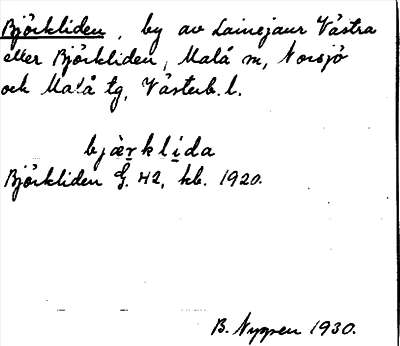 Björkliden, by av Lainejaur Västra
eller Björkliden, Malå sn, Norsjö
och Malå tg, Västerb. l.
bjæ̀r̲kli̲da
Björkliden G. 42, kb. 1920.
B. Nygren 1930.